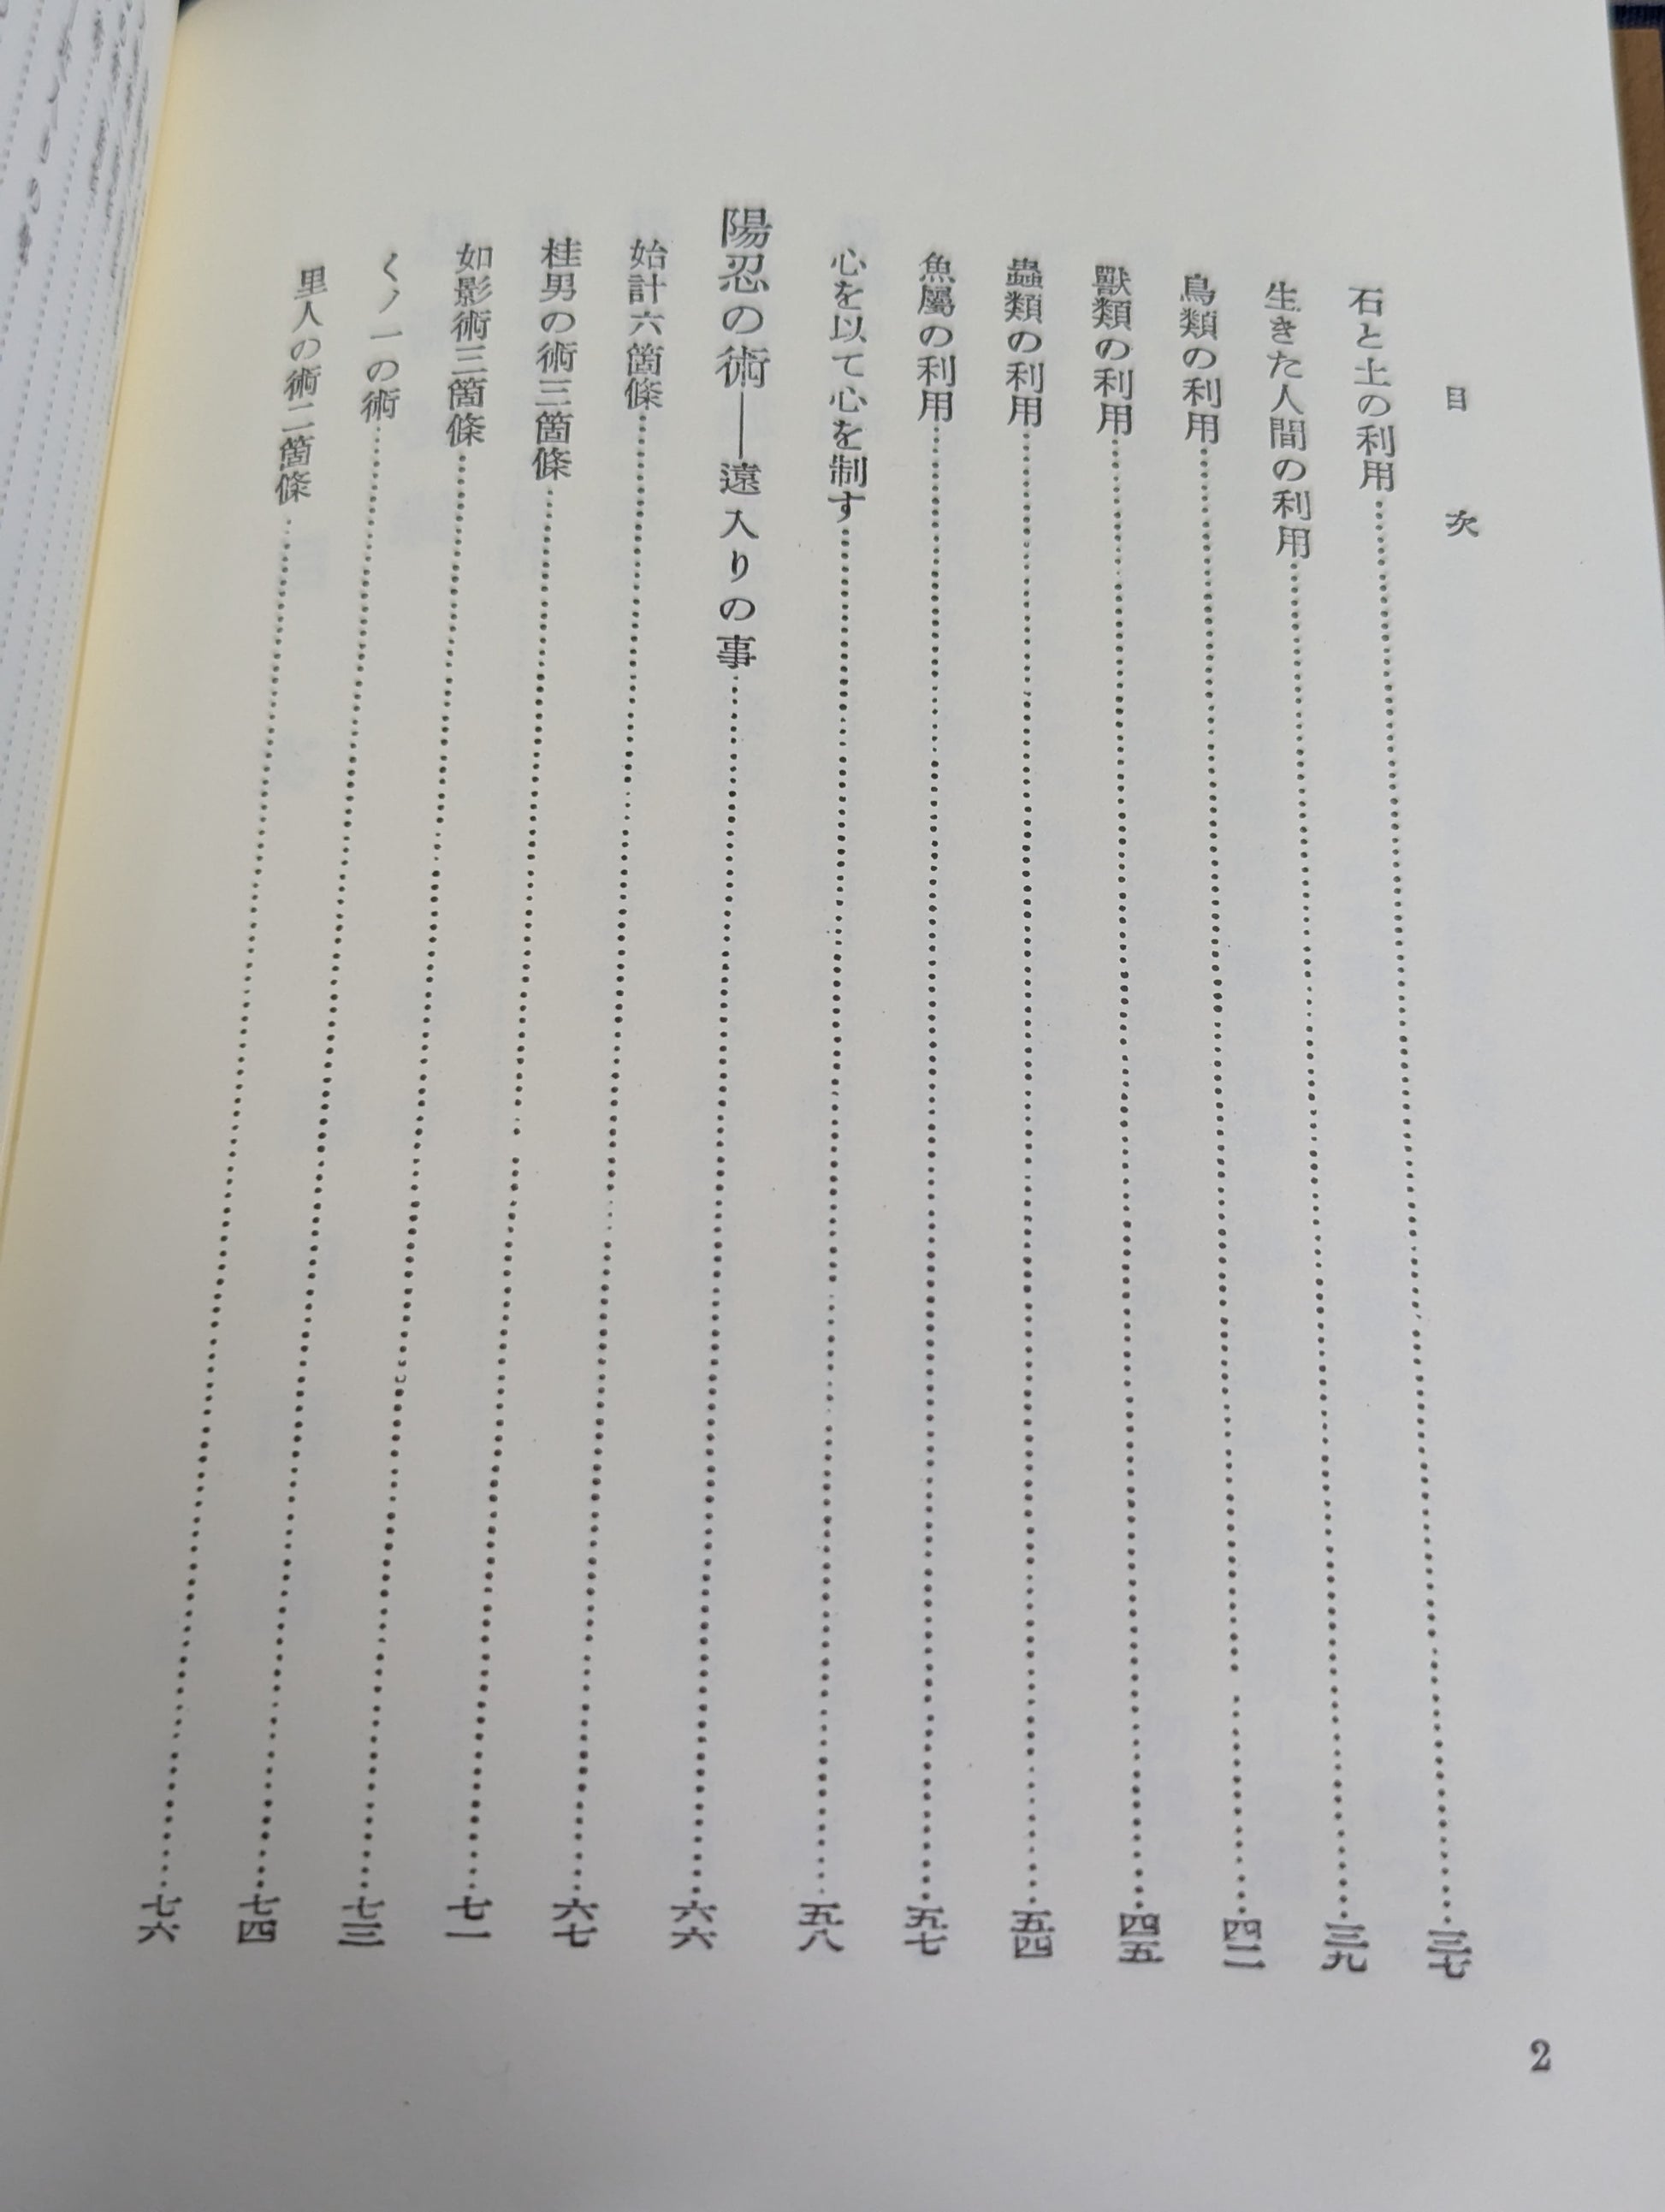 目次
石と土の利用……三七
生きた人間の利用……三九
鳥類の利用……四二
獸類の利用……四五
蟲類の利用……五四
魚屬の利用……五七
心を以て心を制す……五八
陽忍の術――遠入りの事……六六
始計六箇條……六七
桂男の術三箇條……七一
如影術三箇條……七三
くノ一の術……七四
里人の術二箇條……七六
2